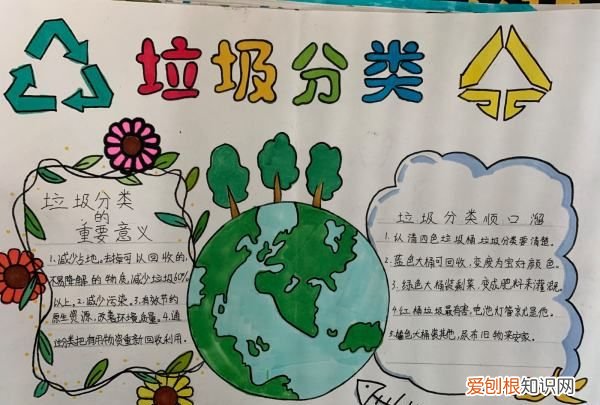 垃圾分类
垃圾分类
的
重要意义
1.减少占地。去掉可以回收的,
不易降解的物质,减少垃圾60%
以上。2.减少污染。3.有效节约
原生资源,改善环境质量。4.通
过分类把有用物资重新回收利用.
垃圾分类顺口溜
1.认清四色垃圾桶,垃圾分类要清楚。
2.蓝色大桶可回收,变废为宝好颜色。
3.绿色大桶装剩菜,变成肥料来灌溉。
4.红桶垃圾最有害,电池灯管就是他。
5.橙色大桶类其他,尿布旧物来安家。
爱刨根知识网